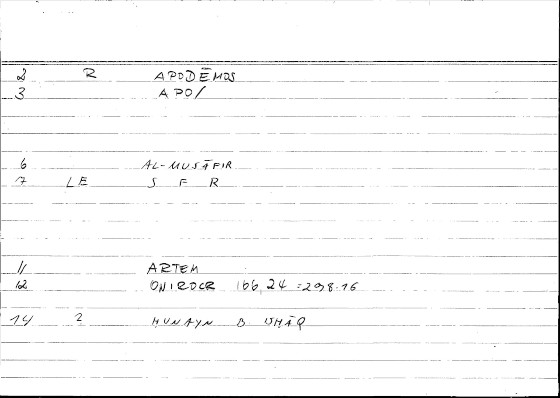 2 R APODĒMOS
3 APO/
6 AL-MUSĀFIR
7 LE S F R
11 ARTEM
12 ONIROCR 166,24 = 298.16
14 2 HUNAYN B ISHĀQ